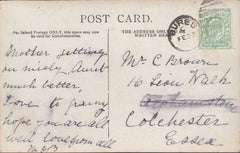 POST CARD.
For Inland Postage ONLY, this space may now be used for Correspondence.
THE ADDRESS ONLY
WRITTEN HERE
BURES
FE
Mother getting
on nicely. Aunt
much better,
Love to
hope you are all
well love from all
Mr C Brown
16 Lion Walk
Colchester
Essex